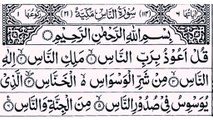 اٰيَاتُهَا ٦ سُوْرَةُ النَّاسِ مَكِّيَّةٌ (٢١) رُكُوْعُهَا ١
بِسْمِ اللّٰهِ الرَّحْمٰنِ الرَّحِيْمِ
قُلْ اَعُوْذُ بِرَبِّ النَّاسِ ۝ مَلِكِ النَّاسِ ۝ اِلٰهِ
النَّاسِ ۝ مِنْ شَرِّ الْوَسْوَاسِ ۝ الْخَنَّاسِ ۝ الَّذِيْ
يُوَسْوِسُ فِيْ صُدُوْرِ النَّاسِ ۝ مِنَ الْجِنَّةِ وَ النَّاسِ ۝